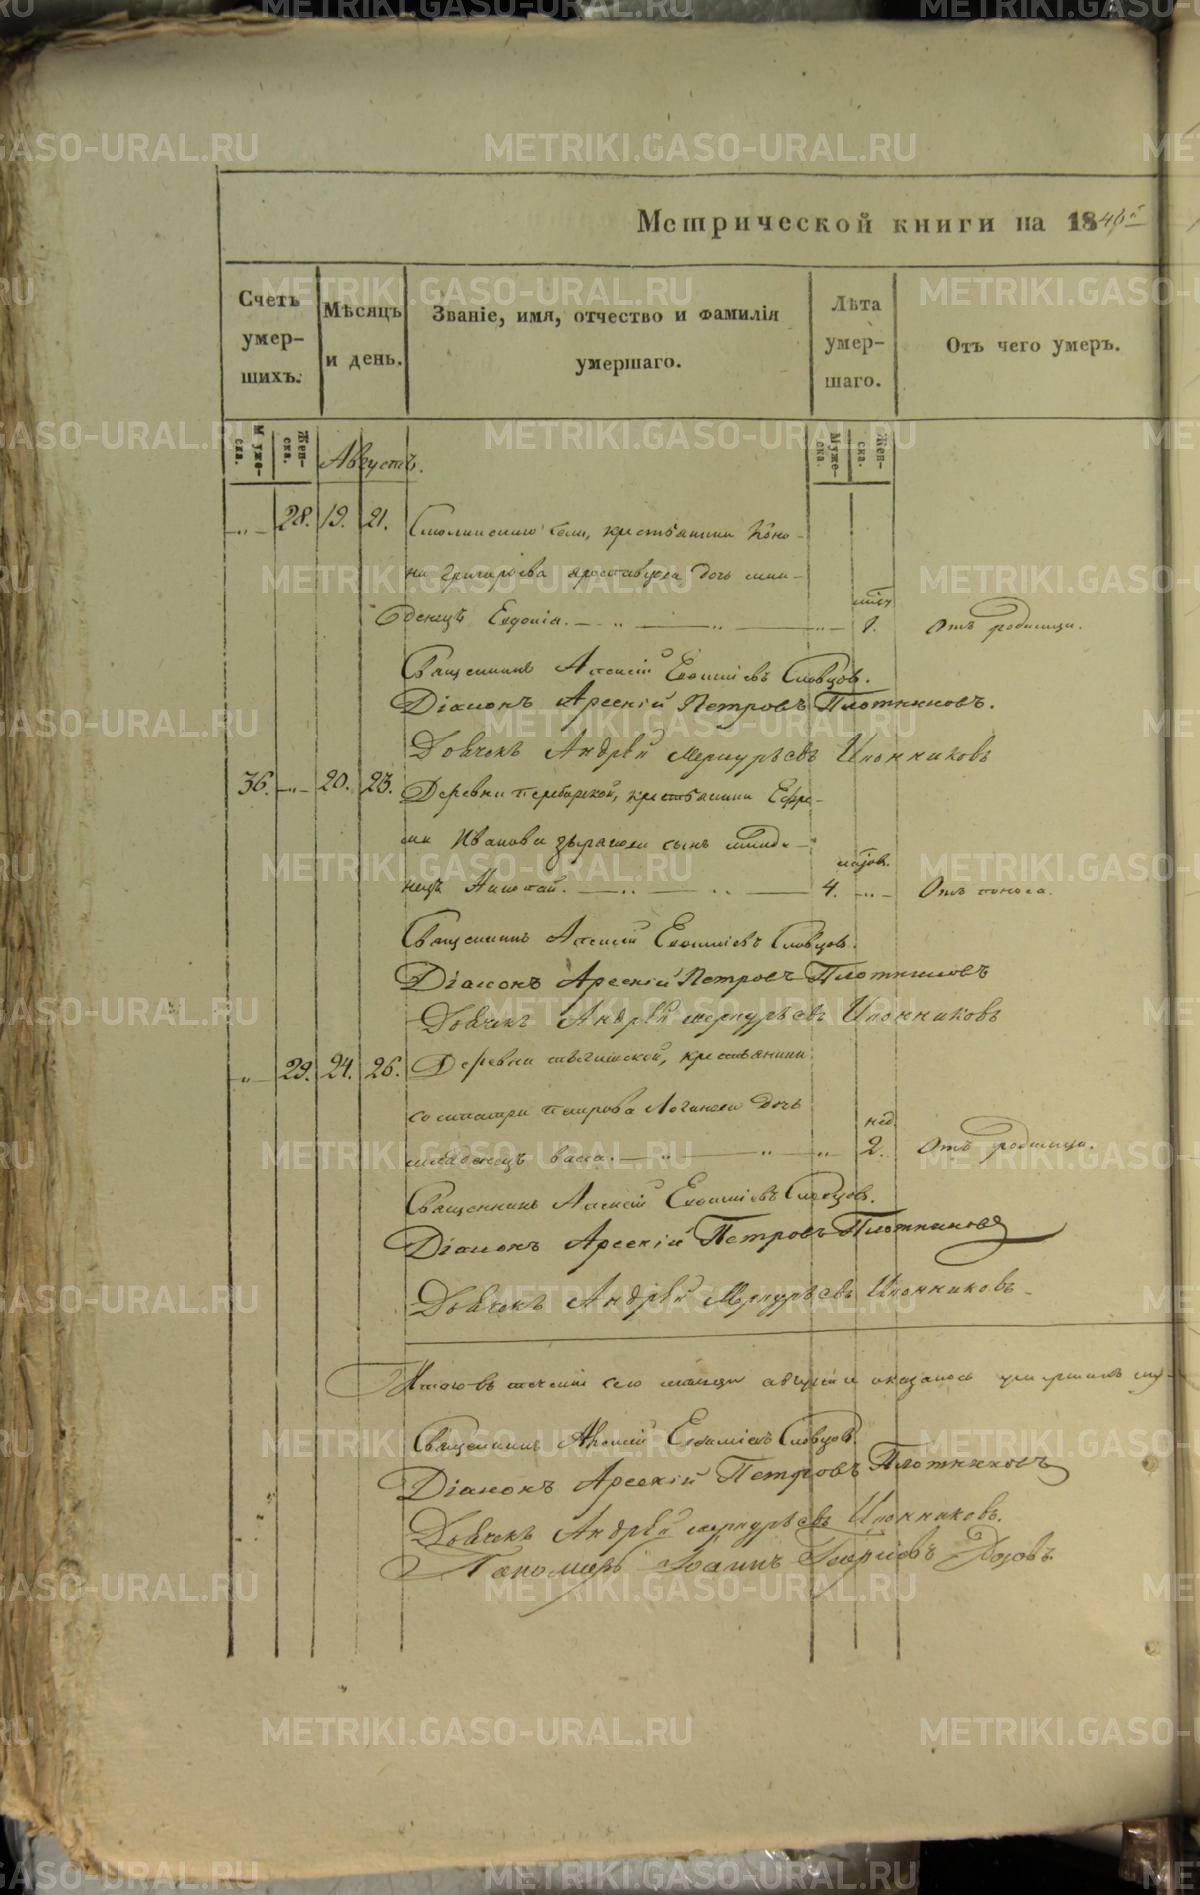 Метрической книги на 1846
Счетъ умер-шихъ.
Мѣсяцъ и день.
Званіе, имя, отчество и фамилія умершаго.
Лѣта умер-шаго.
Отъ чего умеръ.
Муже-ска.
Жен-ска.
Августъ.
Муже-ска.
Жен-ска.
28. 19. 21. Смолинскаго села, крестьянина Коно-
на Григорьева дочь мла-
денецъ Евдокія. 1. Отъ родимца.
Священникъ Алексій Евфиміевъ Словцов.
Діаконъ Арсеній Петровъ Плотниковъ.
Дьячекъ Андрей Меркурьевъ Иконниковъ
36. 20. 23. Деревни крестьянина Ефре-
ма Иванова Зырянова сынъ младе-
нецъ Николай. 4. Отъ поноса.
Священникъ Алексій Евфиміевъ Словцов.
Діаконъ Арсеній Петровъ Плотниковъ
Дьячекъ Андрей Меркурьевъ Иконниковъ
29. 24. 26. Деревни крестьянина
Петрова Логинова дочь
младенецъ Васса. нед. 2. Отъ родимца.
Священникъ Алексій Евфиміевъ Словцов.
Діаконъ Арсеній Петровъ Плотниковъ
Дьячекъ Андрей Меркурьевъ Иконниковъ
Итого въ теченіи сего месяца августа оказалось умершихъ му-
Священникъ Алексій Евфиміевъ Словцов.
Діаконъ Арсеній Петровъ Плотниковъ
Дьячекъ Андрей Меркурьевъ Иконниковъ.
Пономарь Іоаннъ Георгіевъ
METRIKI.GASO-URAL.RU